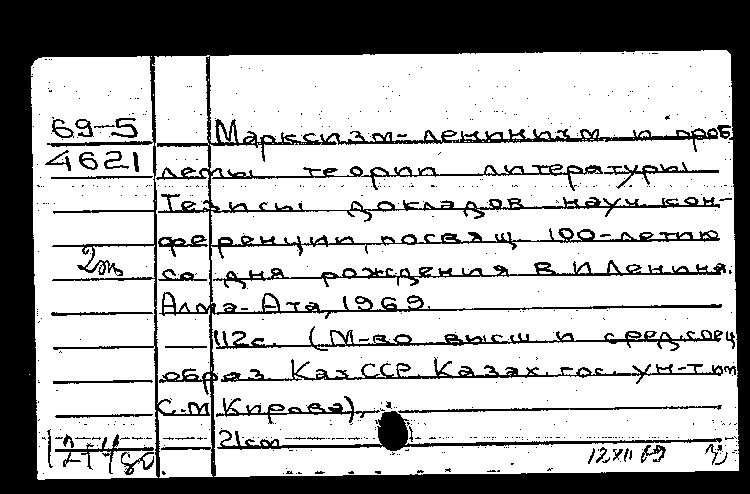 69-5
4621
Марксизм-ленинизм и проб
лемы теории литературы
Тезисы докладов науч кон-
ференции, посвящ. 100-летию
со дня рождения В И Ленина.
Алма-Ата, 1969.
112с. (М-во высш и сред.спец
образ КазССР. Казах. гос. ун-т им
С.М Кирова),
21cm
12 XII 69